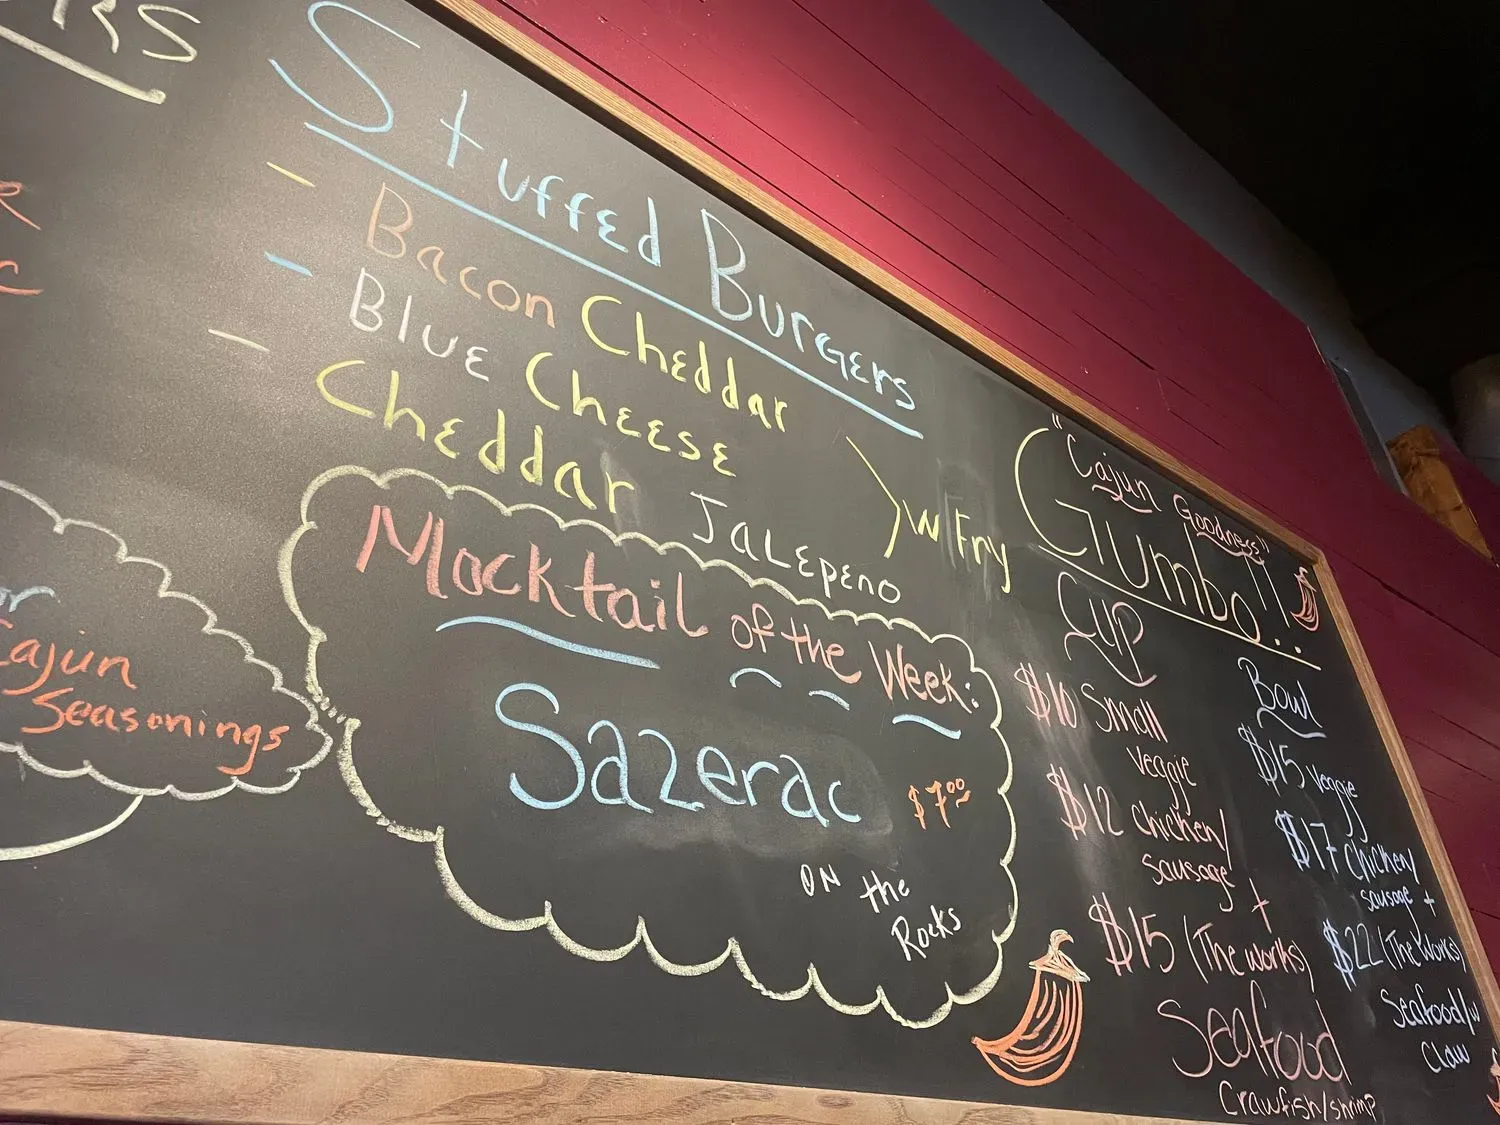 Stuffed Burgers
- Bacon Cheddar
- Blue Cheese
- Cheddar Jalepeno
W Fry
Cajun
Seasonings
Mocktail of the Week:
Sazerac
$7.00
ON the
Rocks
"Cajun Goodness"
Gumbo!!
Cup
$10 Small
Veggie
$12 chicken/
sausage
+
$15 (The works)
Seafood
Crawfish/shrimp
Bowl
$15 veggie
$17 chicken/
sausage +
$22 (The Works)
Seafood/w
Claw